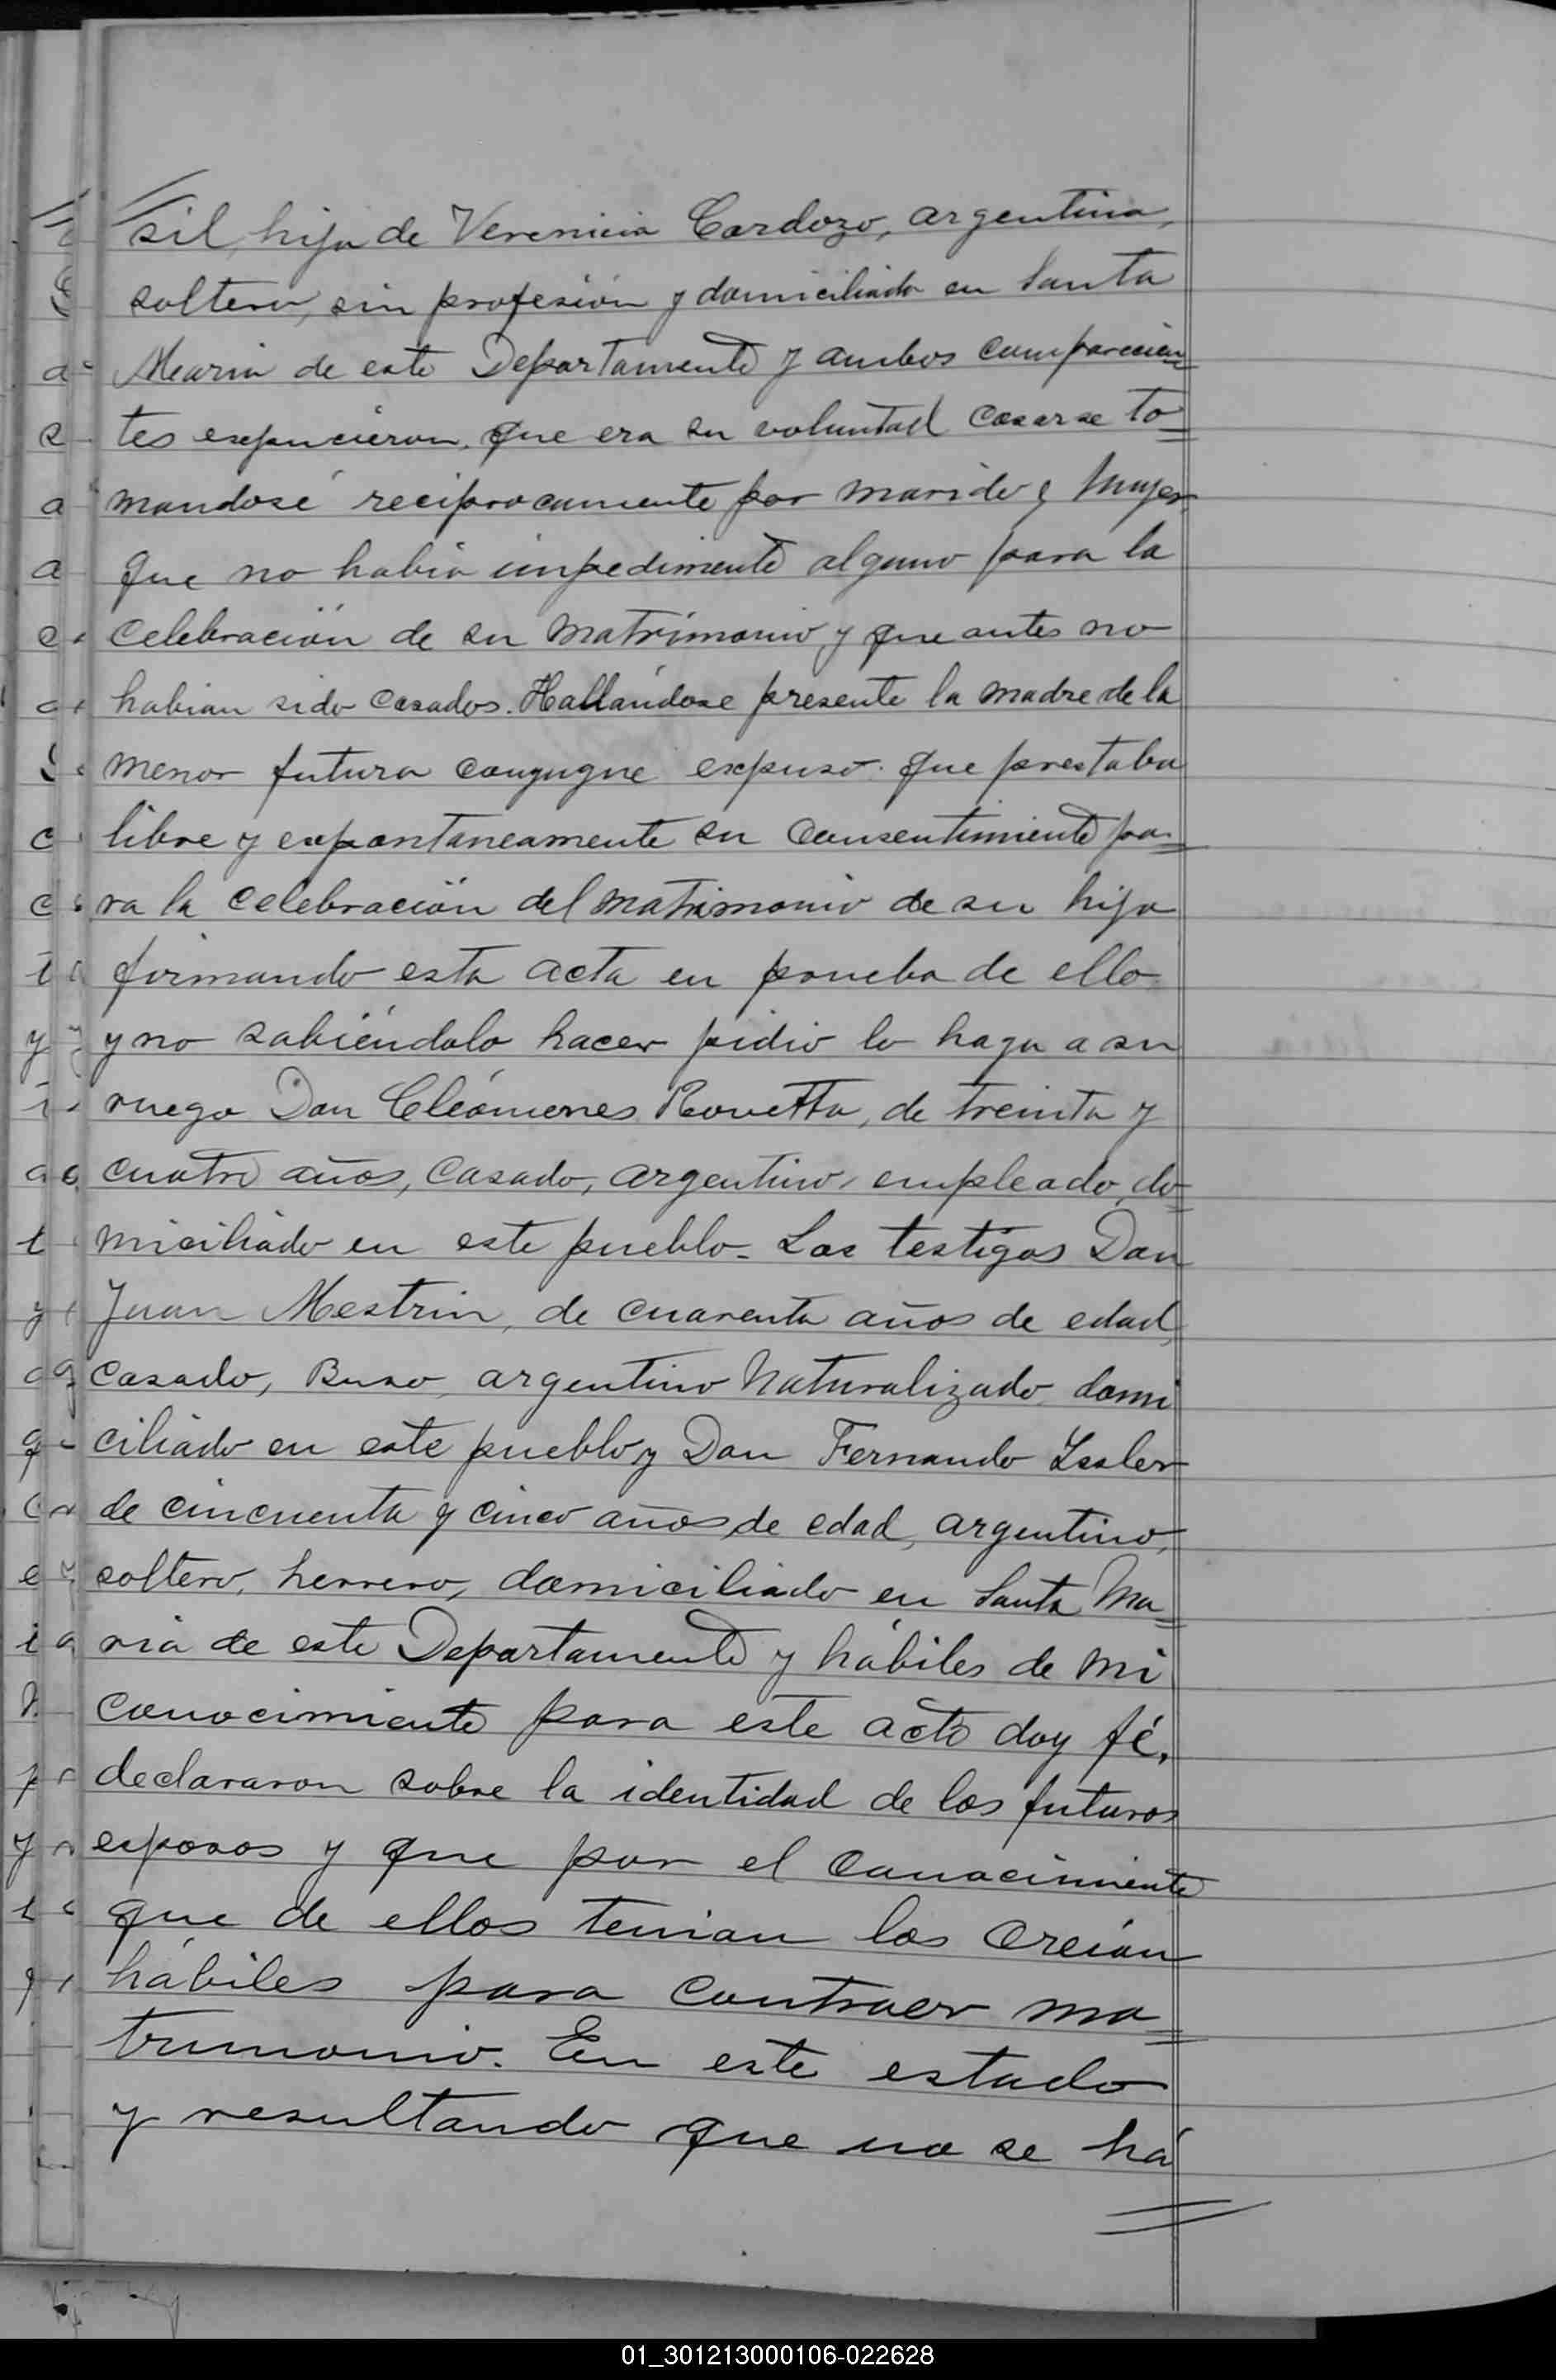 sil, hija de Verenicia Cardozo, argentina,
soltera, sin profesión y domiciliada en Santa
Maria de este Departamento y ambos comparecien
tes expucieron, que era su voluntad casarse to=
mandosé reciprocamente por marido y muger,
que no habia impedimento alguno para la
celebración de su matrimonio, y que antes no
habian sido casados. Hallándose presente la madre de la
menor futura conyugue expuso: que prestaba
libre y expontaneamente su consentimiento pa=
ra la celebración del matrimonio de su hija
firmando esta acta en prueba de ello
y no sabiéndolo hacer pidio lo haga a su
ruego Don Cleómenes Rovetta, de treinta y
cuatro años, casado, argentino, empleado, do=
miciliado en este pueblo. Los testigos Don
Juan Mestrin, de cuarenta años de edad,
casado, Ruso, argentino naturalizado, domi
ciliado en este pueblo, y Don Fernando
de cincuenta y cinco años de edad, argentino,
soltero, herrero, domiciliado en Santa Ma=
ria de este Departamento y hábiles de mi
conocimiento para este acto doy fé,
declararon sobre la identidad de los futuros
esposos y que por el conocimiento
que de ellos tenian los creían
hábiles para contraer ma=
trimonio. En este estado
y resultando que no se há
01_301213000106-022628